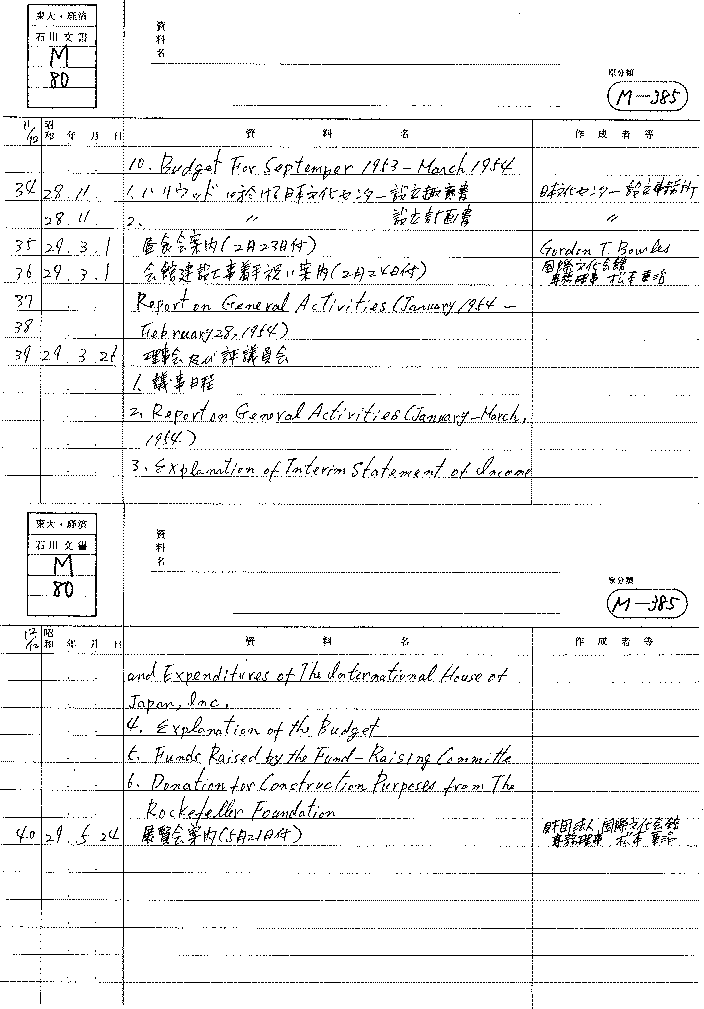 東大・経済
石川文書
M
80
資料名
原分類
M-385
11/12 昭和 年 月 日 資料名 作成者等
10. Budget For September 1953 - March 1954
34 28 11. 1. ハリウッドに於ける日本文化センター設立趣意書 日本文化センター設立事務所
28. 11. 2. 〃 設立計画書 〃
35 29. 3. 1 昼食会案内(2月23日付) Gordon T. Bowles
36 29. 3. 1 会館建設工事着手祝い案内(2月24日付) 国際文化会館 専務理事 松本重治
37 Report on General Activities (January 1954 -
38 February 28, 1954)
39 29 3 26 理事会及び評議員会
1. 議事日程
2. Report on General Activities (January-March,
1954)
3. Explanation of Interim Statement of Income
東大・経済
石川文書
M
80
資料名
原分類
M-385
12/12 昭和 年 月 日 資料名 作成者等
and Expenditures of The International House of
Japan, Inc.
4. Explanation of the Budget
5. Funds Raised by the Fund-Raising Committe
6. Donation for Construction Purposes from The
Rockefeller Foundation
40 29 5 24 展覧会案内(5月21日付) 財団法人 国際文化会館 専務理事 松本重治